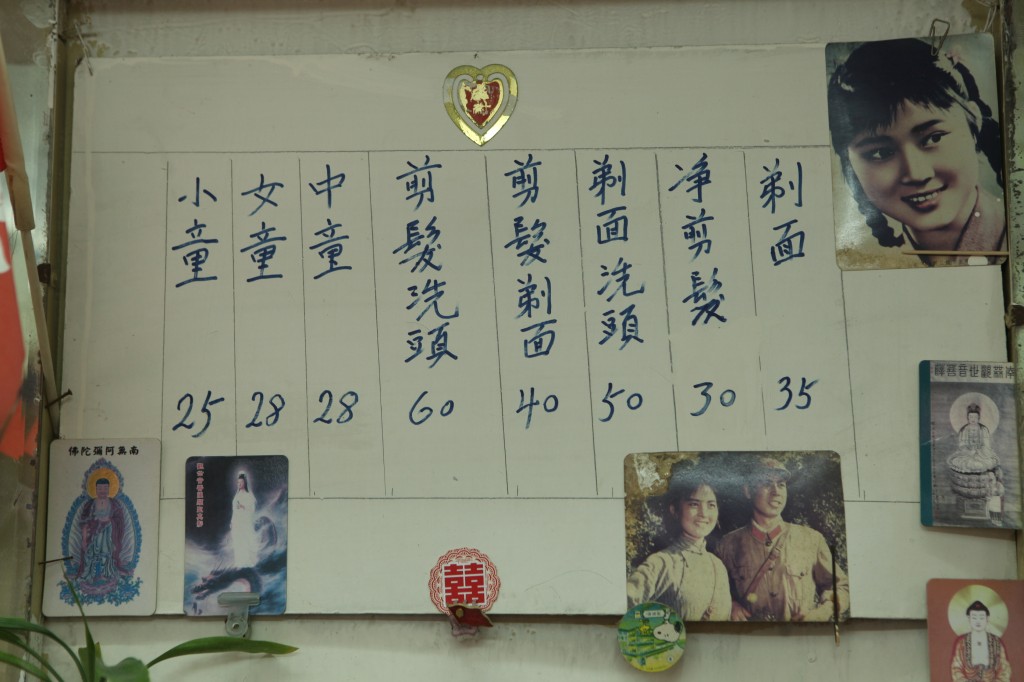 剃面
35
净剪髮
30
剃面洗頭
50
剪髮剃面
40
剪髮洗頭
60
中童
28
女童
28
小童
25
南無阿彌陀佛
囍